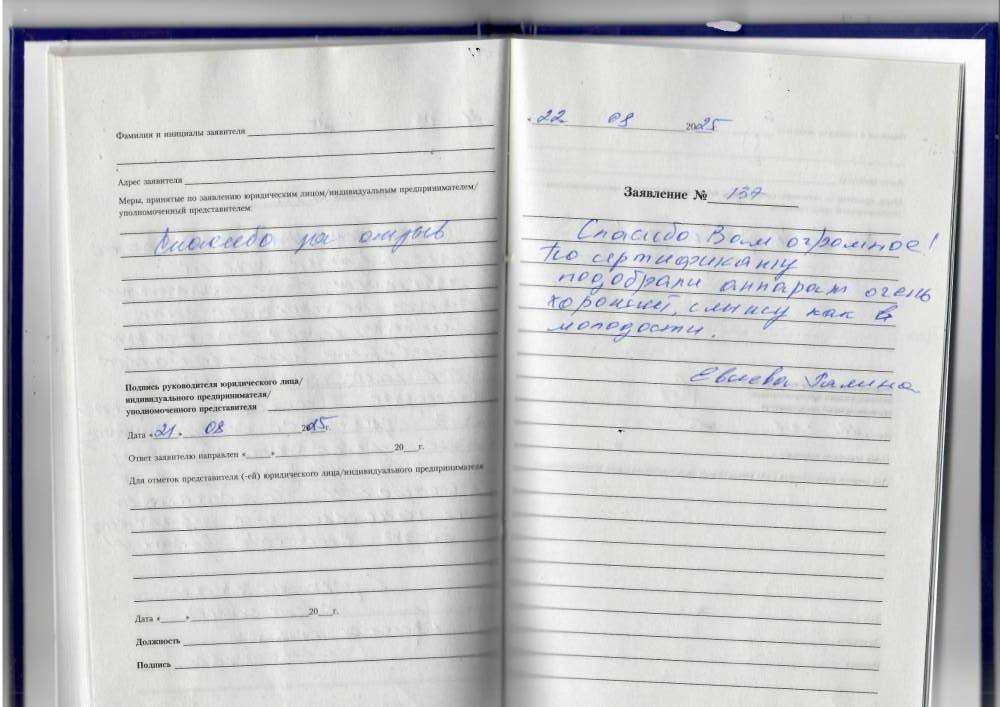 Фамилия и инициалы заявителя
Адрес заявителя
Меры, принятые по заявлению юридическим лицом/индивидуальным предпринимателем/
уполномоченный представителем:
Спасибо за отзыв
Подпись руководителя юридического лица/
индивидуального предпринимателя/
уполномоченного представителя
Дата «21» 08 2025г.
Ответ заявителю направлен «____»____ 20___г.
Для отметок представителя (-ей) юридического лица/индивидуального предпринимателя
Дата «____»____ 20___г.
Должность
Подпись
22 08 2025
Заявление № 137
Спасибо Вам огромное!
По сертификату
подобрали аппарат очень
хороший, слышу как в
молодости.
Галина